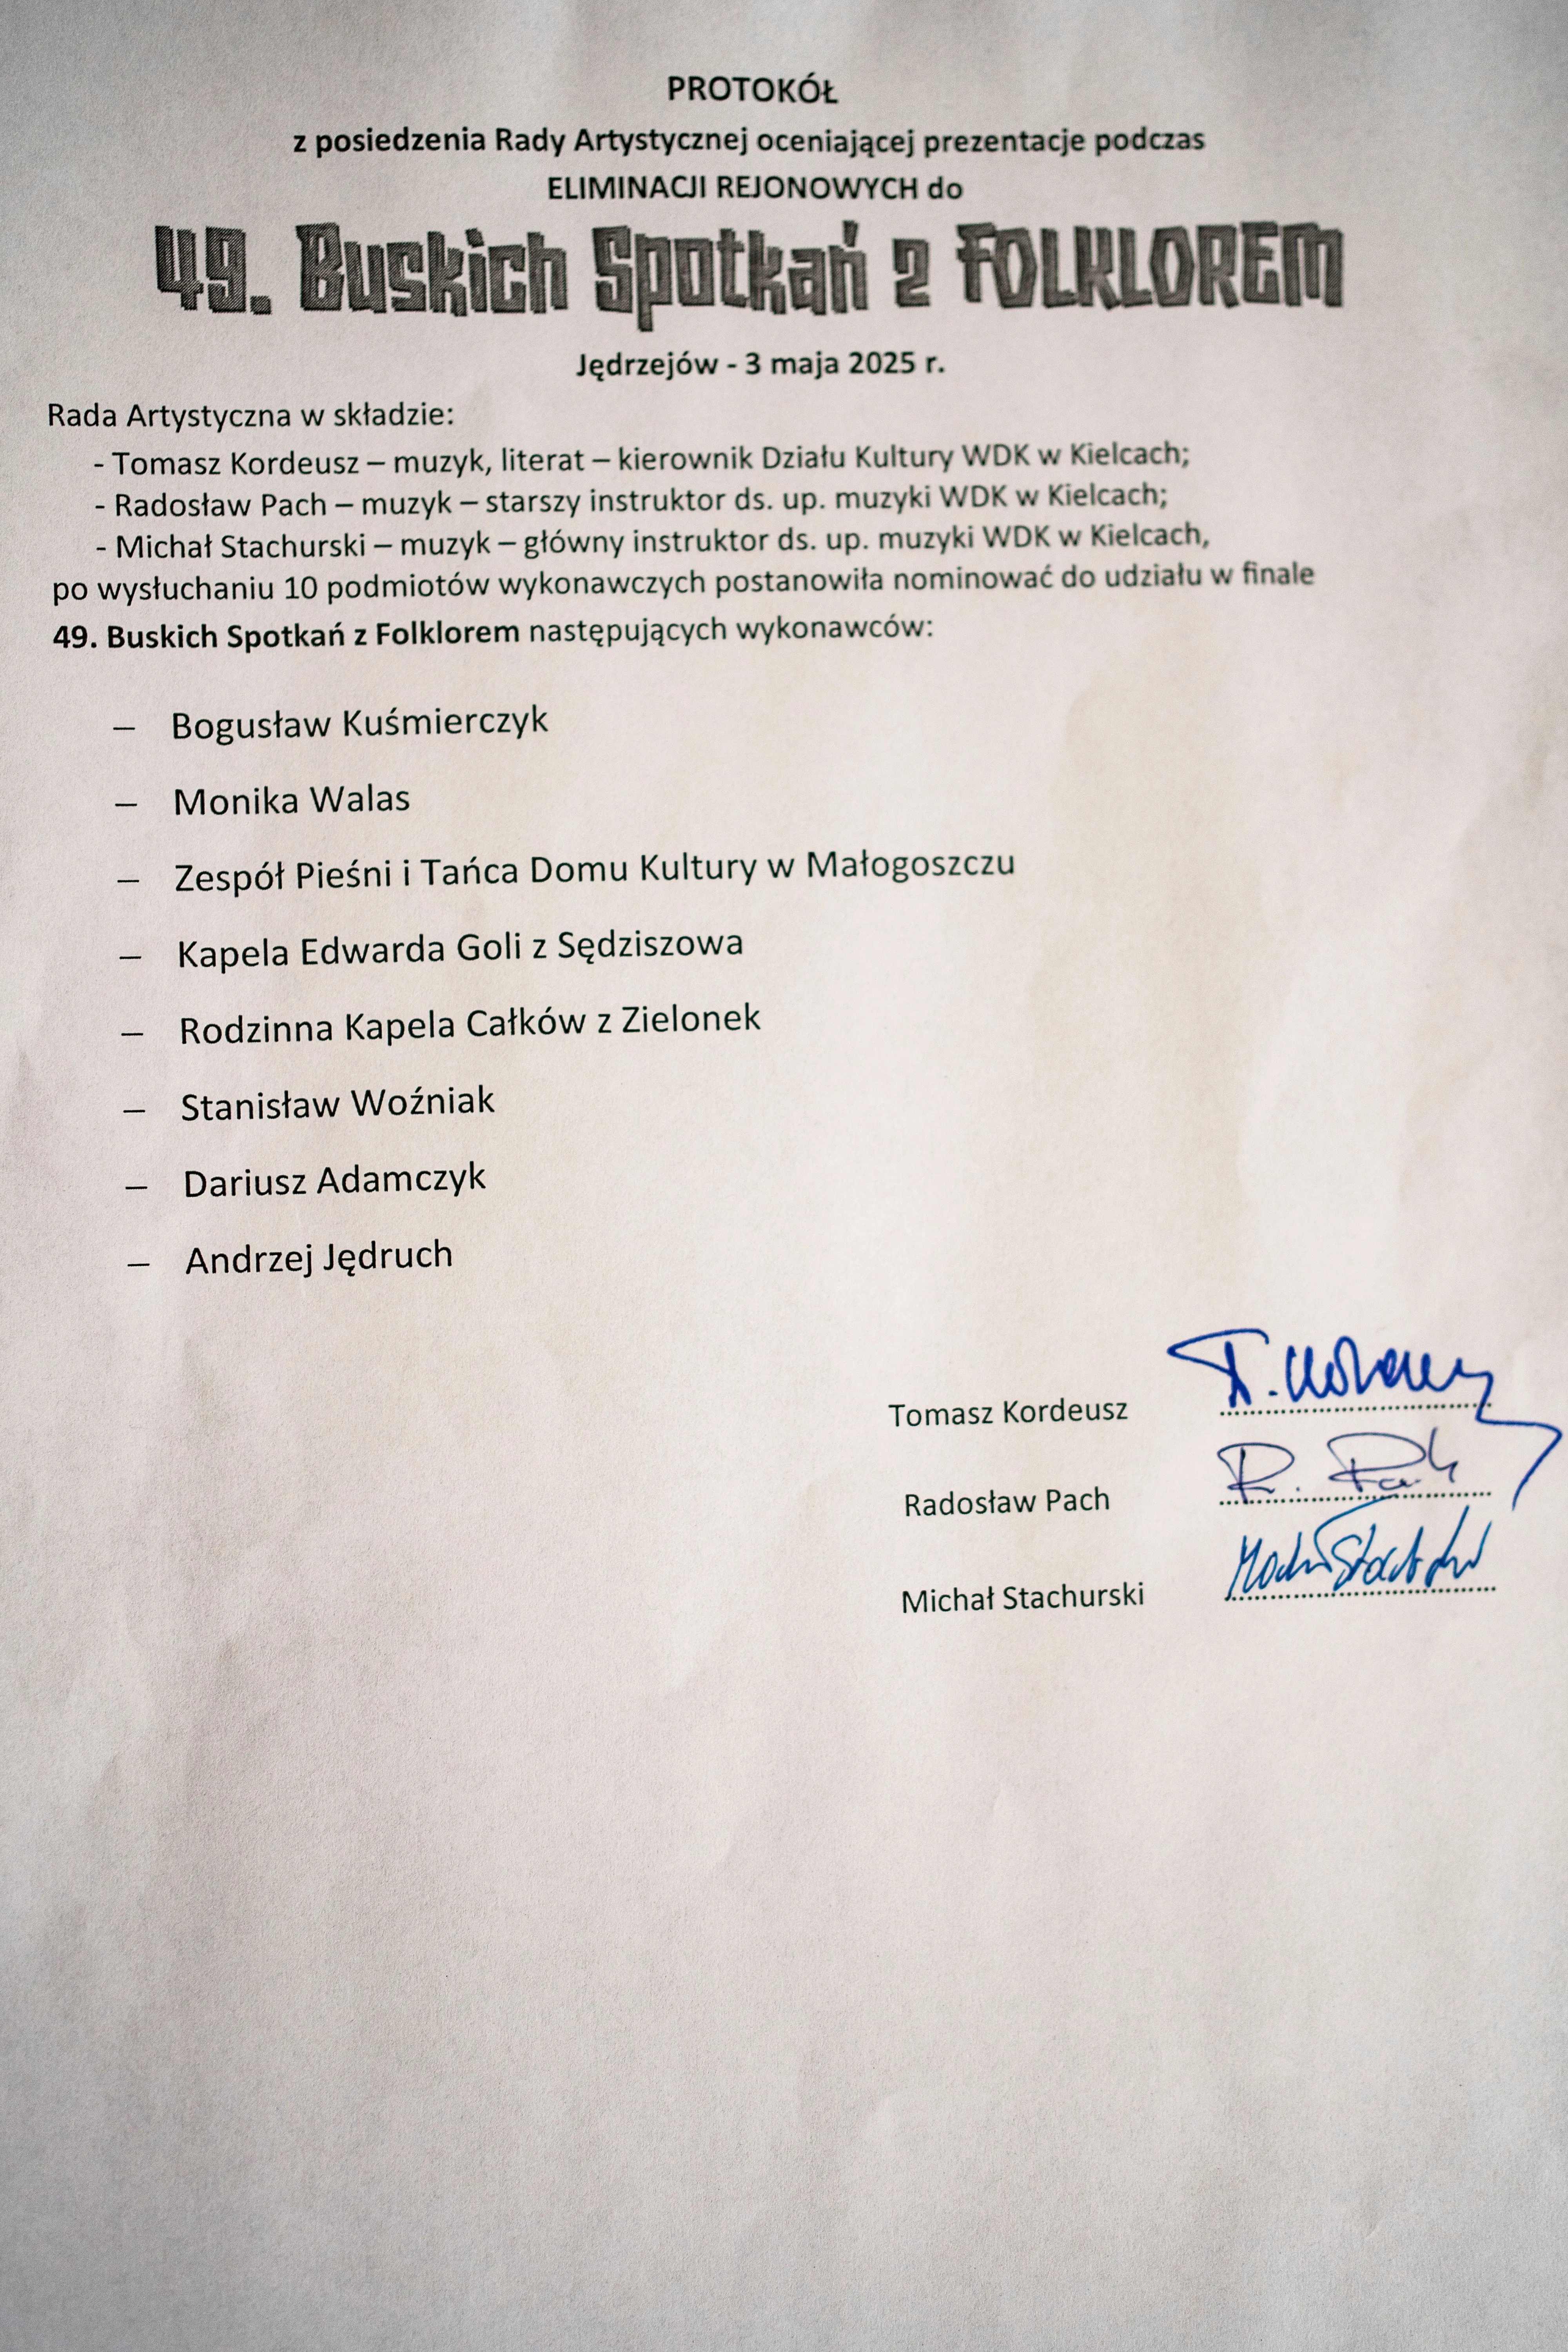 PROTOKÓŁ
z posiedzenia Rady Artystycznej oceniającej prezentacje podczas
ELIMINACJI REJONOWYCH do
49. Buskich Spotkań z FOLKLOREM
Jędrzejów - 3 maja 2025 r.
Rada Artystyczna w składzie:
- Tomasz Kordeusz – muzyk, literat – kierownik Działu Kultury WDK w Kielcach;
- Radosław Pach – muzyk – starszy instruktor ds. up. muzyki WDK w Kielcach;
- Michał Stachurski – muzyk – główny instruktor ds. up. muzyki WDK w Kielcach,
po wysłuchaniu 10 podmiotów wykonawczych postanowiła nominować do udziału w finale
49. Buskich Spotkań z Folklorem następujących wykonawców:
– Bogusław Kuśmierczyk
– Monika Walas
– Zespół Pieśni i Tańca Domu Kultury w Małogoszczu
– Kapela Edwarda Goli z Sędziszowa
– Rodzinna Kapela Całków z Zielonek
– Stanisław Woźniak
– Dariusz Adamczyk
– Andrzej Jędruch
Tomasz Kordeusz
Radosław Pach R. Pach
Michał Stachurski